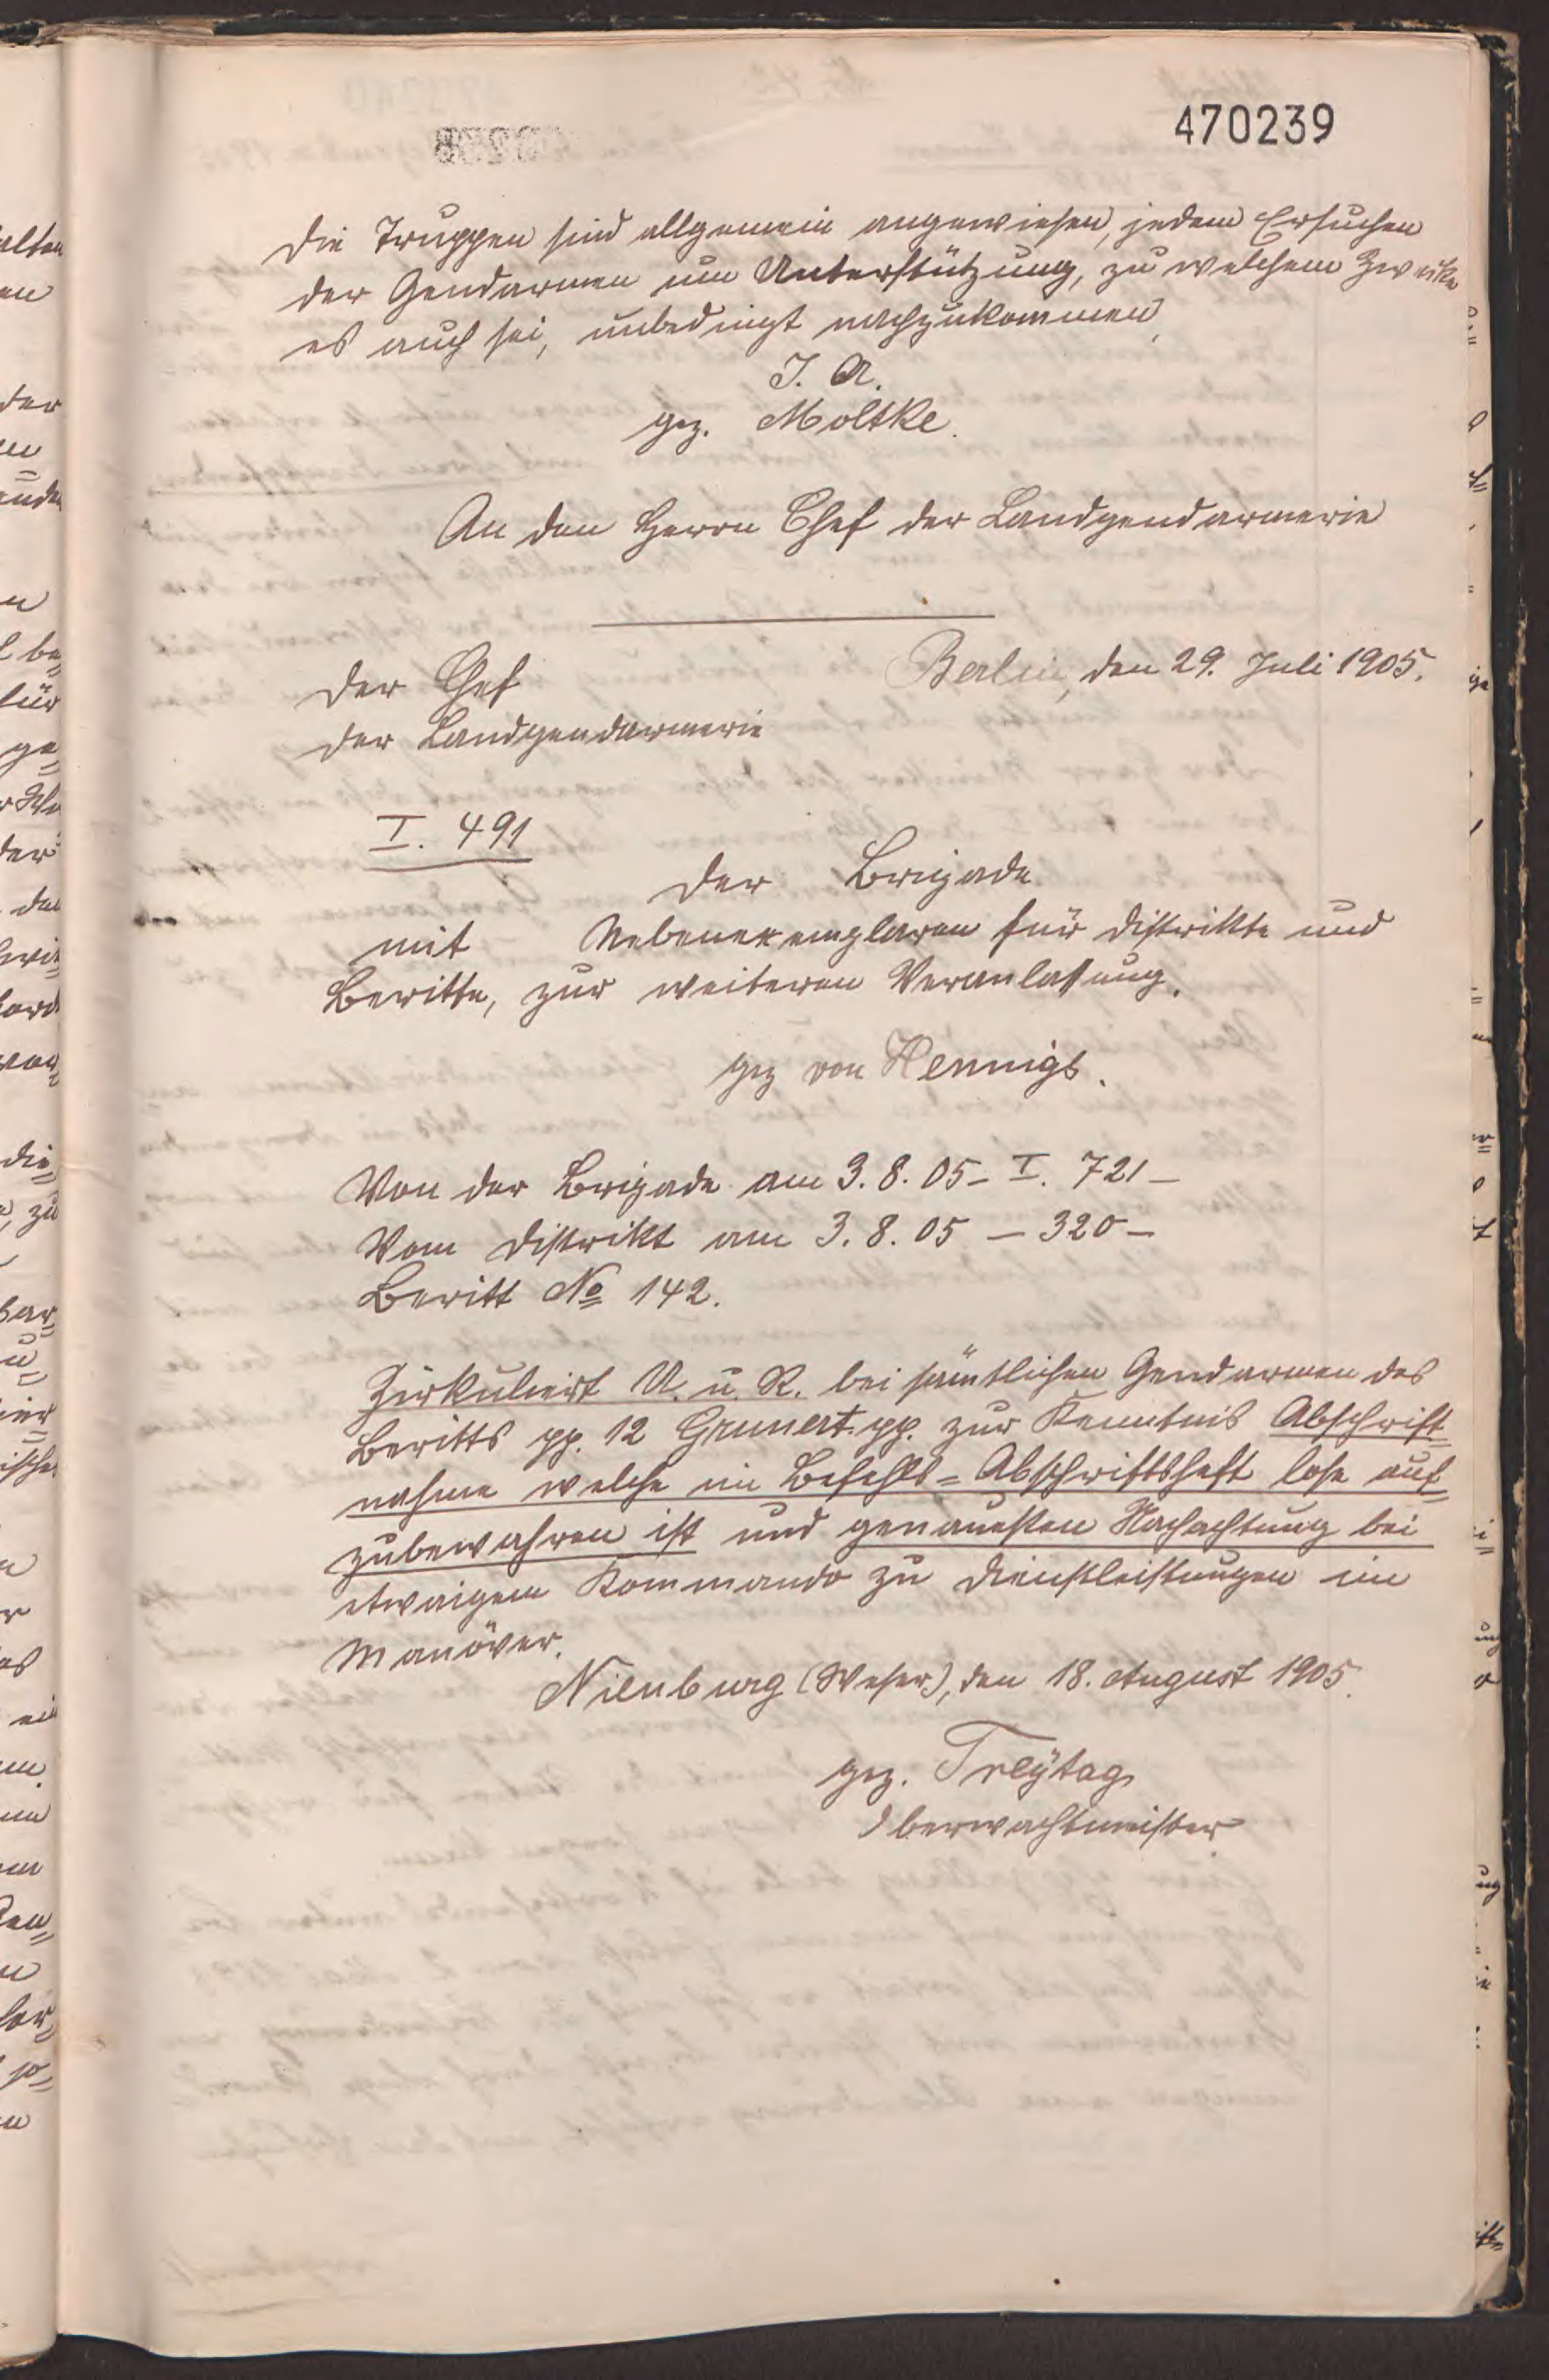 470239
Die Truppen sind allgemein angewiesen, jedem Ersuchen
der Gendarmen um Unterstützung, zu welchem Zwecke
es auch sei, unbedingt nachzukommen,
I. A.
gez. Moltke.
An den Herrn Chef der Landgendarmerie
Der Chef
der Landgendarmerie
Berlin, den 29. Juli 1905.
I. 491
Der Brigade
mit Nebenexemplaren für Distrikte und
Beritte, zur weiteren Veranlassung.
gez von Hennigs.
Von der Brigade am 3. 8. 05 – I. 721 –
Vom Distrikt am 3. 8. 05 – 320 –
Beritt No 142.
Zirkuliert U. u. R. bei sämtlichen Gendarmen des
Beritts pp. 12 Grunert pp. zur Kenntnis Abschrift=
nahme welche im Befehls=Abschriftsheft lose auf=
zubewahren ist und genauesten Nachachtung bei
etwaigem Kommando zu Dienstleistungen im
Manöver.
Nienburg (Weser), den 18. August 1905.
gez. Freÿtag
Oberwachtmeister